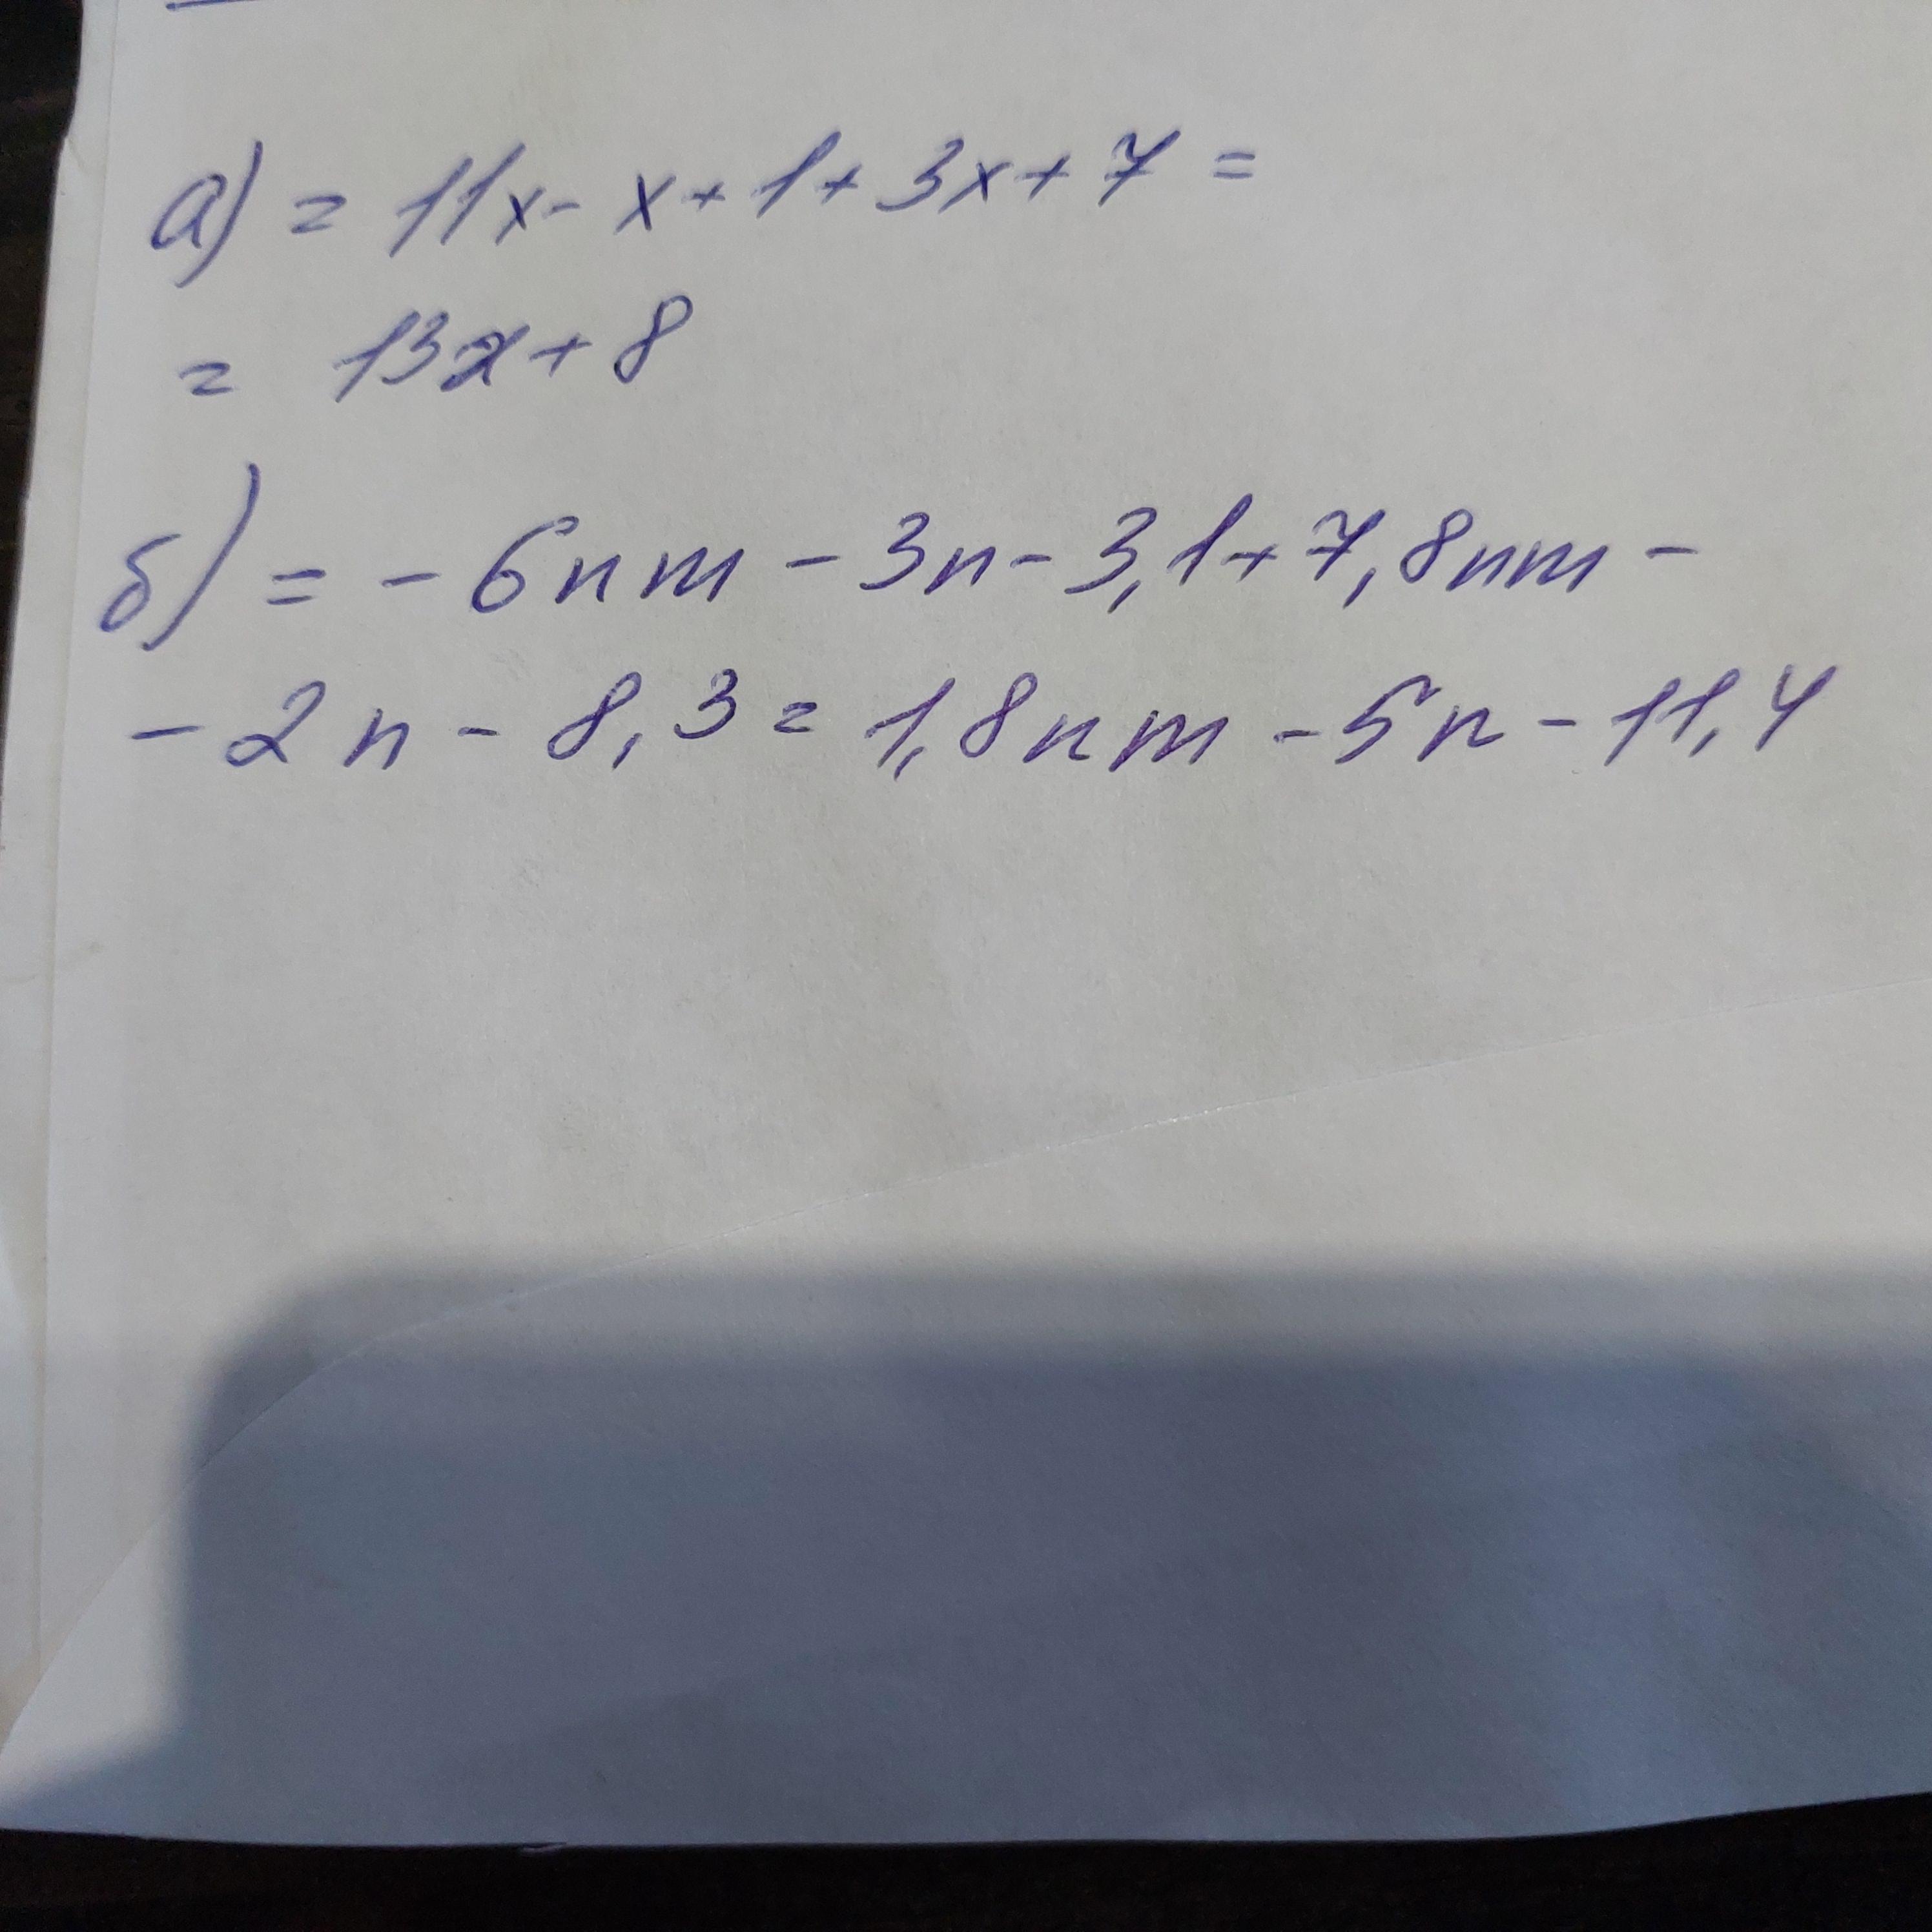 а) = 11x - x + 1 + 3x + 7 =
= 13x + 8
б) = - 6nm - 3n - 3,1 + 7,8nm -
- 2n - 8,3 = 1,8nm - 5n - 11,4